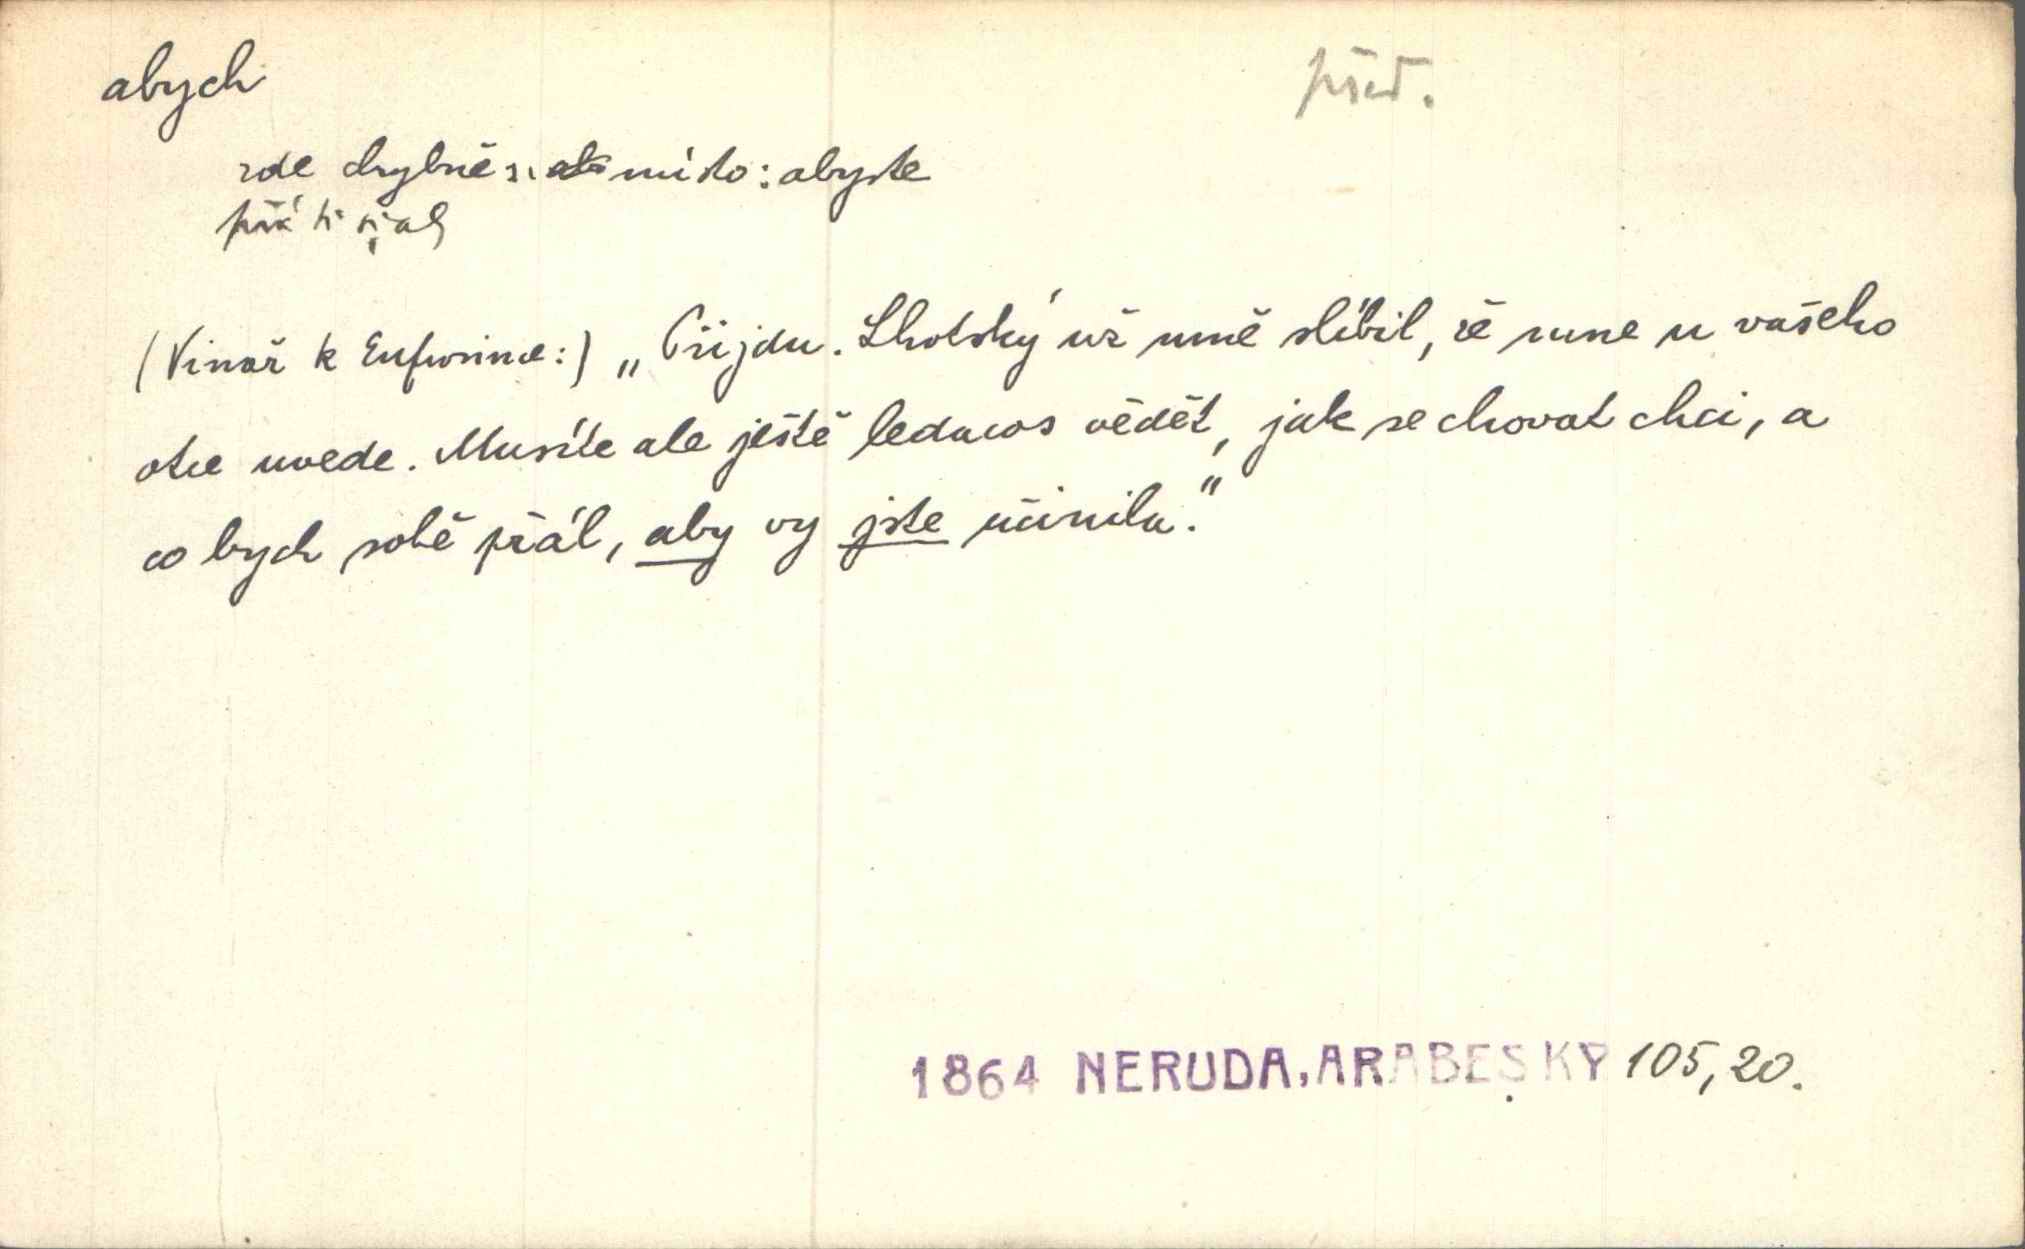 abych
před.
zde chybně místo: abyste
přá ti si, ab
(Vinař k Eufrosine:) „Přijdu. Lhotský už mně slíbil, že mne u vašeho
otce uvede. Musíte ale ještě ledacos vědět, jak se chovat chci, a
co bych sobě přál, aby vy jste učinila."
1864 NERUDA, ARABESKY 105, 20.